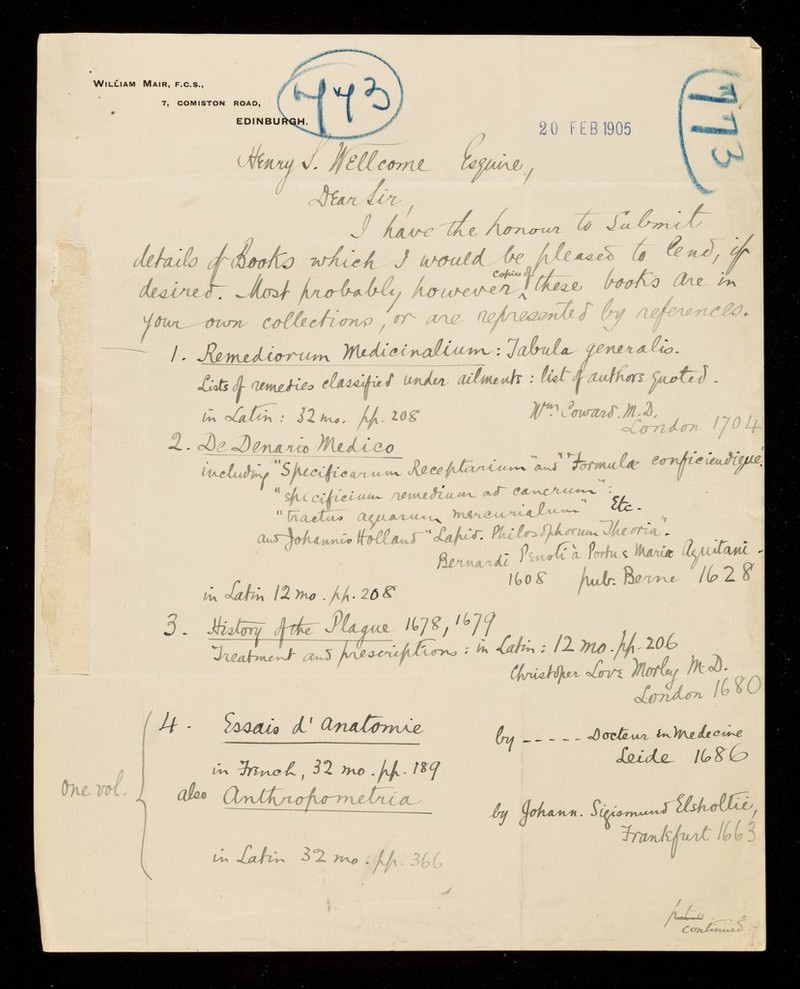 WILLIAM MAIR, F.C.S.,
7, COMISTON ROAD,
EDINBURGH.
773
20 FEB 1905
773
Henry S. Wellcome Esquire,
Dear Sir,
I have the honour to Submit
details of Books which I would be pleased to lend, if
desired. Most probably however copies of these books are in
your own collections, or are represented by references.
1. Remediorum Medicinalium: Tabula generalis.
Lists of remedies classified under ailments: list of authors quoted.
in Latin: 32mo. pp. 208 Wm Coward. M.D.
London 1704
2. De Denario Medico
including "Specificarum Receptarium" and "Formulæ conficiendique
"specificium remedium ad cancrum":
"tractus aquarum mercurialium" Etc.
and Johannis Holland "Lapid. Philosophorum Theoria".
Bernardi Penoti à Portu S Mariæ Aquitani -
1608 pub. Berne 1628
in Latin 12mo. pp. 208
3. History of the Plague 1678, 1679
Treatment and prescriptions: in Latin: 12 mo. pp. 206
Christopher Love Morley M.D.
London 1680
4. Essais d'Anatomie by ----- Docteur en Medecine
Leide 1686
in French, 32 mo. pp. 189
One vol. also Anthropometria by Johann. Sigismund Elsholtie,
Frankfurt 1663
in Latin 32 mo. pp. 366
continued